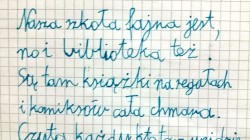 Nasza szkoła fajna jest,
no i biblioteka też.
Są tam książki na regałach
i komiksów cała chmara.
Czyta każdy kto tam